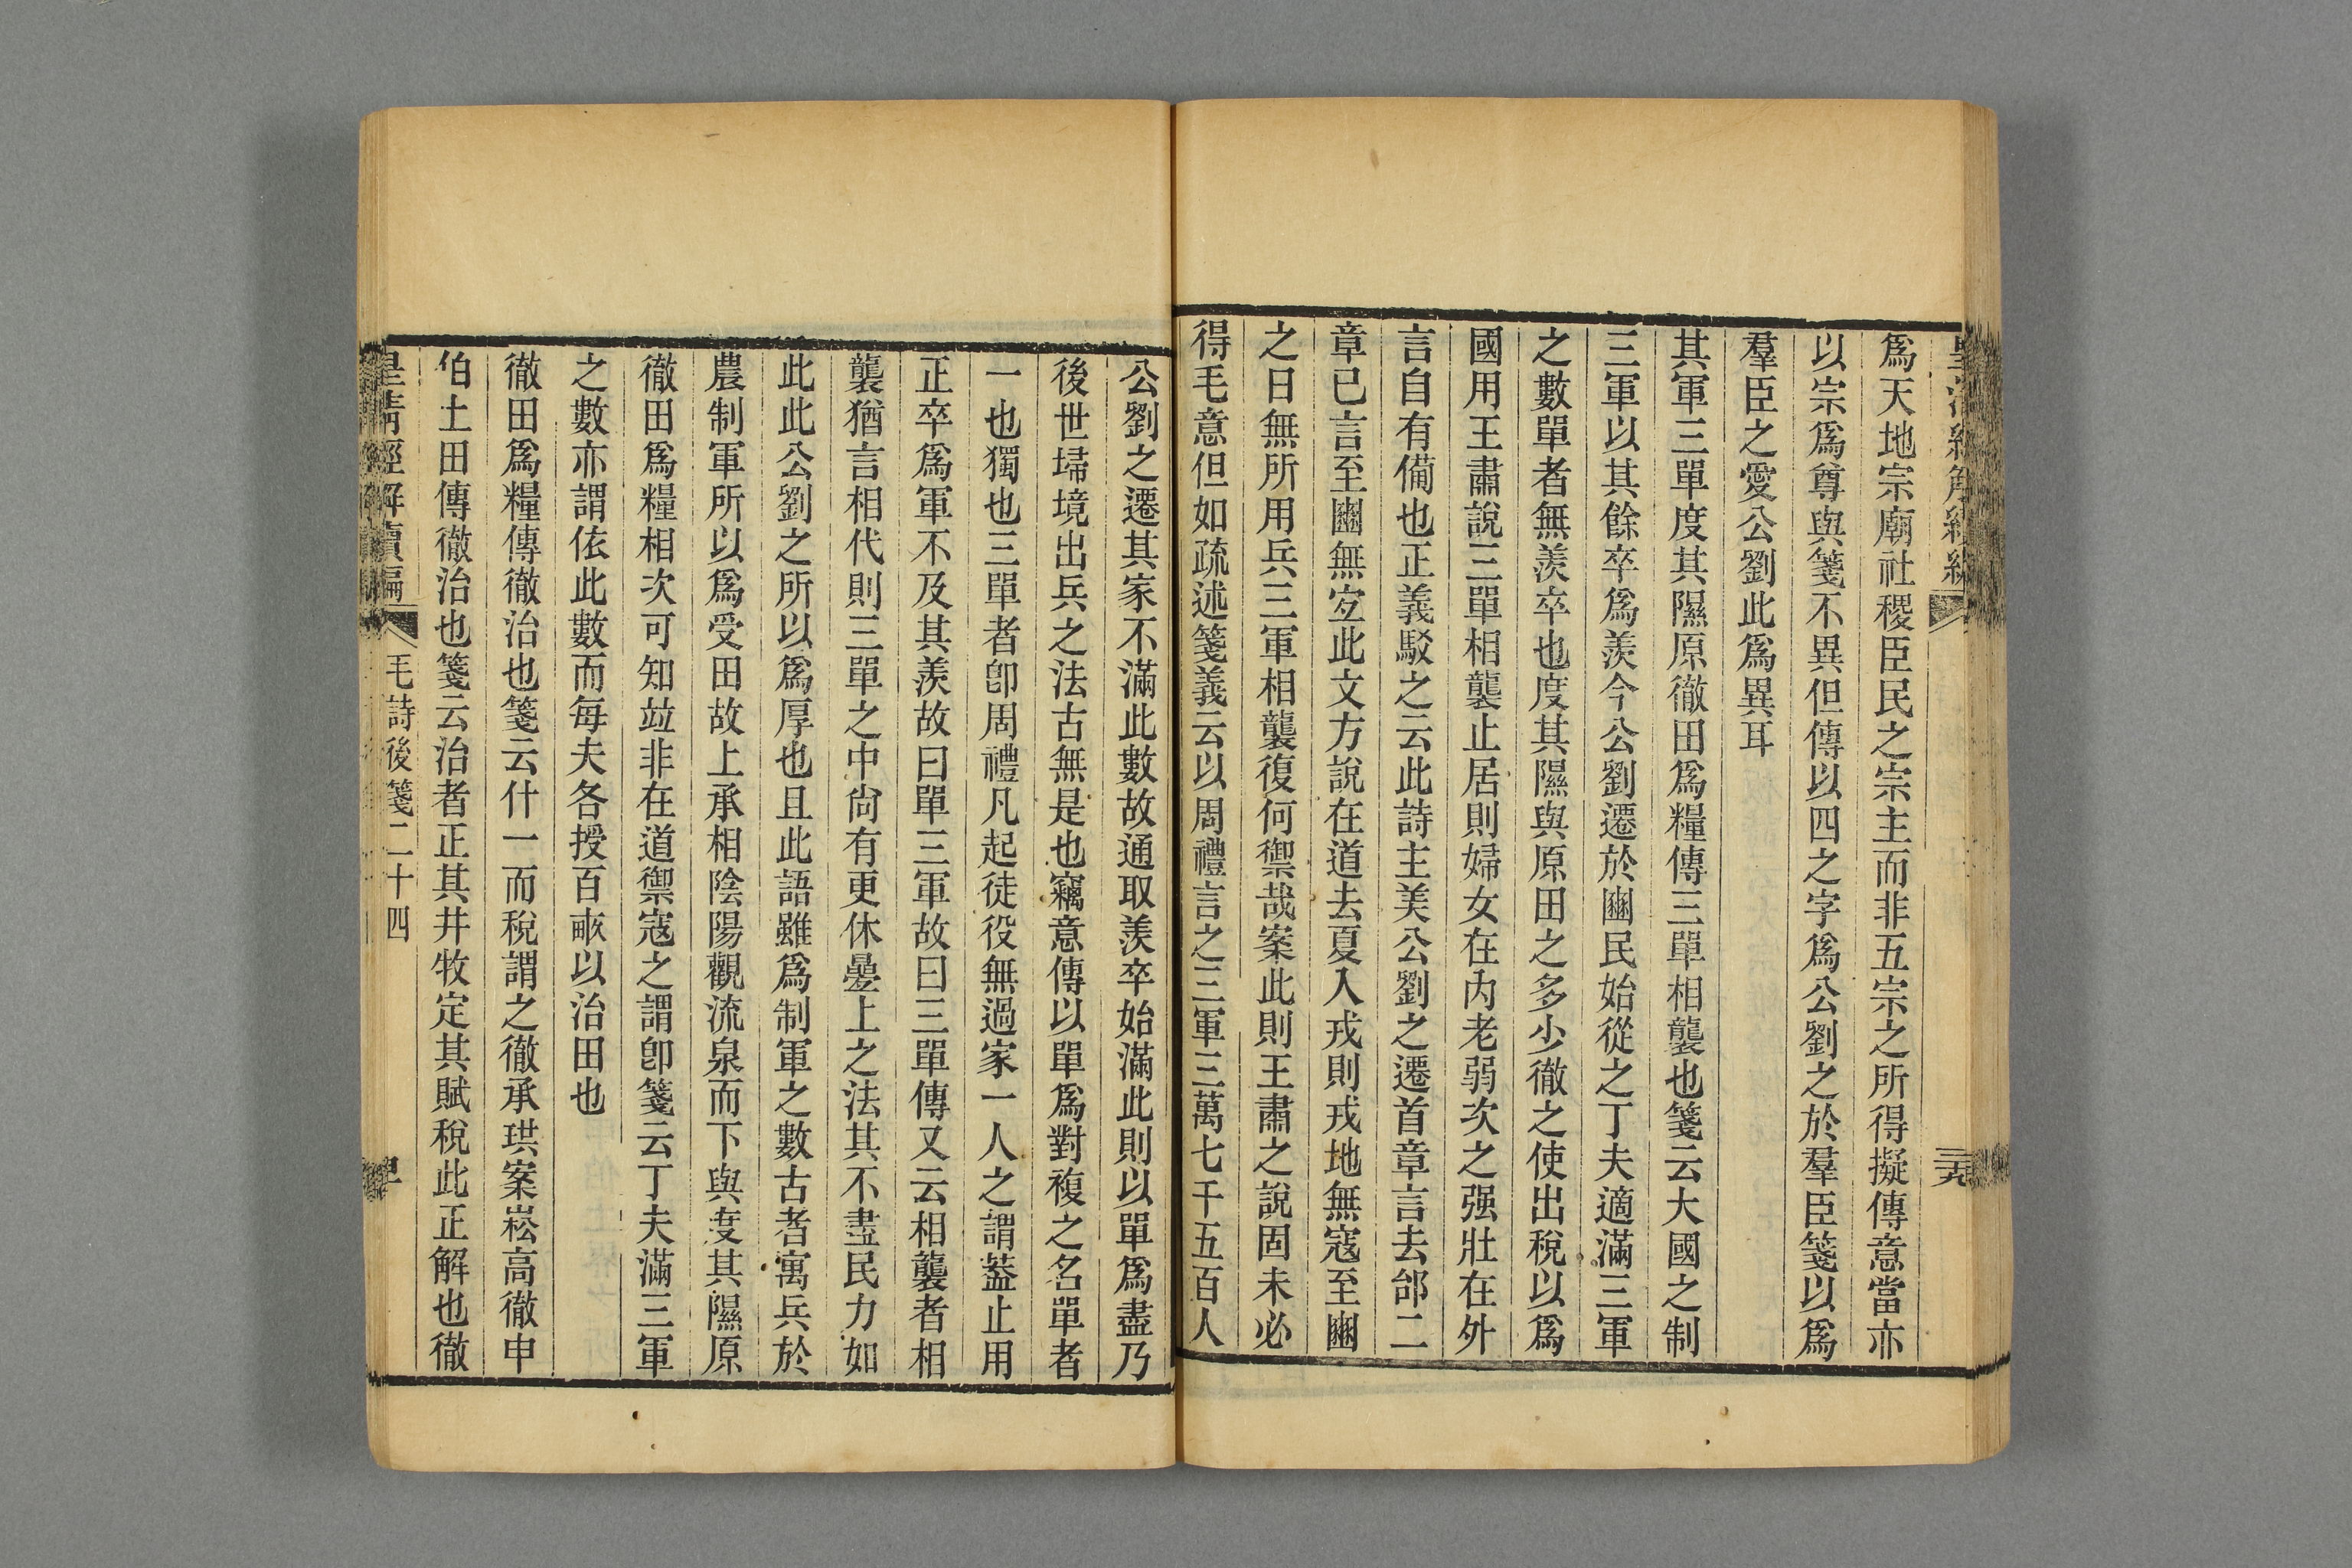 爲天地宗廟社稷臣民之宗主而非五宗之所得擬傳意當亦
以宗爲尊與箋不異但傳以四之字爲公劉之於羣臣箋以爲
羣臣之愛公劉此爲異耳
其軍三單度其隰原徹田爲糧傳三單相襲也箋云大國之制
三軍以其餘卒爲羨今公劉遷於豳民始從之丁夫適滿三軍
之數單者無羨卒也度其隰與原田之多少徹之使出稅以爲
國用王肅說三單相襲止居則婦女在內老弱次之强壯在外
言自有備也正義駁之云此詩主美公劉之遷首章言去邰二
章已言至豳無㝎此文方說在道去夏入戎則戎地無寇至豳
之日無所用兵三軍相襲復何禦哉案此則王肅之說固未必
得毛意但如疏述箋義云以周禮言之三軍三萬七千五百人
公劉之遷其家不滿此數故通取羨卒始滿此則以單爲盡乃
後世埽境出兵之法古無是也竊意傳以單爲對複之名單者
一也獨也三單者卽周禮凡起徒役無過家一人之謂葢止用
正卒爲軍不及其羨故曰單三軍故曰三單傳又云相襲者相
襲猶言相代則三單之中尙有更休曡上之法其不盡民力如
此此公劉之所以爲厚也且此語雖爲制軍之數古者寓兵於
農制軍所以爲受田故上承相陰陽觀流泉而下與度其隰原
徹田爲糧相次可知竝非在道禦寇之謂卽箋云丁夫滿三軍
之數亦謂依此數而每夫各授百畞以治田也
徹田爲糧傳徹治也箋云什一而稅謂之徹承珙案崧高徹申
伯土田傳徹治也箋云治者正其井牧定其賦稅此正解也徹
皇清經解續編 毛詩後箋二十四